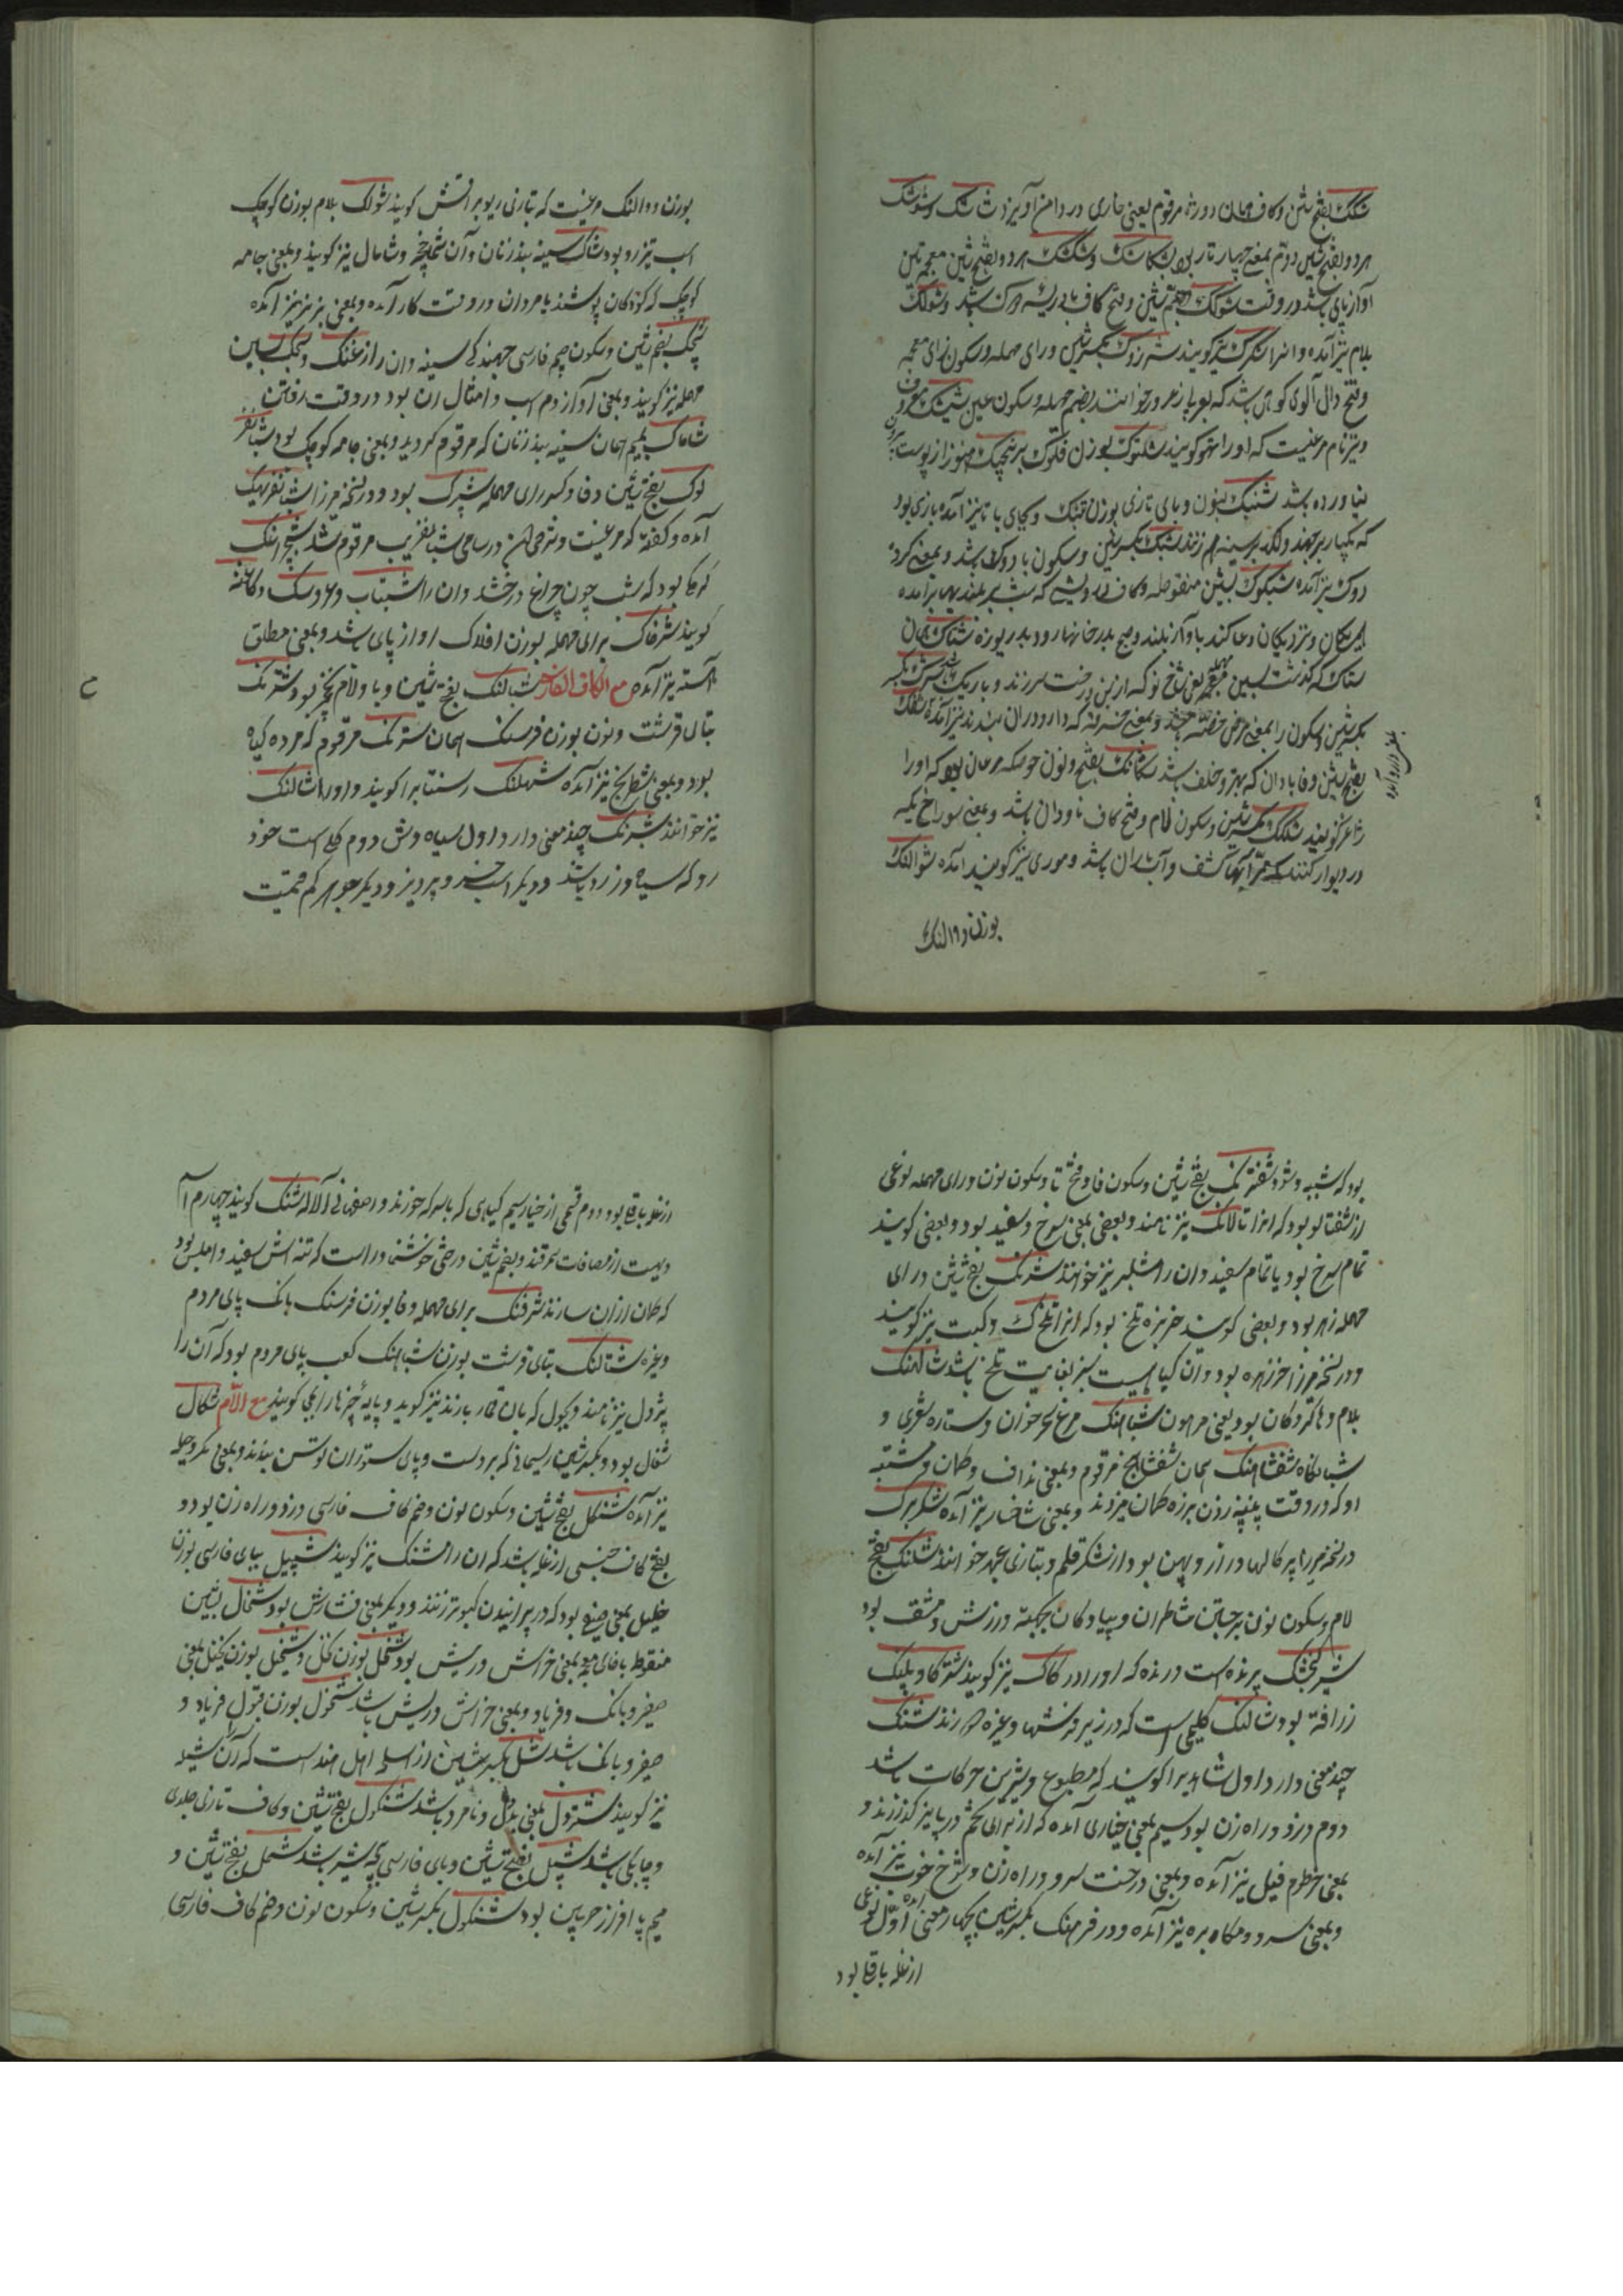 شکک بفتح شین و کاف همان دوژه مرقوم یعنی خاری در دامن آویزد شاشک و شوشک
هر دو بفتح شین دوم بمعنی چهار تار بود شکاشک و شکشک هر دو بفتح شین معجمتین
آواز پای باشد در وقت شولک بضم شین و فتح کاف باشد و شولک
بلام نیز آمده و انرا نیز گویند بکسر شین و رای مهمله و سکون زای معجمه
و فتح دال آلوی کوهی باشد که بعربی زعرور خوانند بضم مهمله و سکون عین شبشک معروف
و نیز نام مرغیست که او را تیهو گویند شکنوک بوزن فلوک برنجیک هنوز از پوست بیرون
نیاورده باشد شنبک بنون و بای تازی بوزن قنبک و بجای با تا نیز آمده بازی بود
که یکبار برجهند و لکد بر سینه هم زنند شبک بکسر شین و سکون با دوک باشد و بمعنی کرده
دوک نیز آمده شبکوک بشین منقوطه و کاف درویشی که شب بر بلندیها برآمده
نزدیکان دعا کند بآواز بلند و صبح بدر خانها رود بدریوزه شتاک همان
ستاک که گذشت بسین مهمله یعنی شاخ نو که از بن درخت سر زند و باریک باشد
بکسر شین و سکون را بمعنی مرض حصبه باشد و بمعنی خرقه که دارو در آن بندند نیز آمده شفک
بفتح شین و فا نادان که بهتر و خلف باشد شکانک بفتح و نون حوصله مرغان بود که او را
ژاغر گویند شلکک بکسر شین و سکون لام و فتح کاف ناودان باشد و بمعنی سوراخ نیکه
در دیوار کنند بهر آبهای کثیف و آب باران باشد و موری نیز گویند آمده شوالک
بوزن دوالنک
بوزن دوالنک مرغیست که بتازی ریو براقش گویند شولک بلام بوزن کوچک
اسب تیزرو بود شاک سینه بند زنان و آن شماخچه و شامال نیز گویند و بمعنی جامه
کوچک که کودکان پوشند یا مردان در وقت کار آمده و بمعنی بز نر نیز آمده
شچک بضم شین و سکون جیم فارسی جهندگی سینه و ان را زغنگ و سچک بسین
مهمله نیز گویند و بمعنی آواز دم اسب و امثال ان بود در وقت رفتن
شاماک بمیم همان سینه بند زنان که مرقوم گردید و بمعنی جامه کوچک بود شتانفر
لوک بفتح شین و فا و کسر رای مهمله شپرک بود و در نسخه میرزا شب تفریک
آمده و گفته که مرغیست و شرح آن در سامی شبانفریب مرقوم شد شبچراغک
کرمی بود که شب چون چراغ درخشد و ان را شبتاب و عروسک و کاغنه
گویند شرفاک برای مهمله بوزن افلاک آواز پای باشد و بمعنی مطلق
آهسته نیز آمده مع الکاف الفارسی شبالنک بفتح شین و با و لام نخجیر بود و شترنک
بتای قرشت و نون بوزن فرسنک همان سترنک مرقوم که مرده گیاه
بود و بمعنی شطرنج نیز آمده شهلنک رسنتاب را گویند و او را شالنک
نیز خوانند شبرنک چند معنی دارد اول سیاه وش دوم گلی است خود
رو که سیاه و زرد باشد و دیگر اسب خسرو پرویز و دیگر جوهر کم قیمت
بود که شبه و شود شفترنک بفتح شین و سکون فا و فتح تا و سکون نون و رای مهمله نوعی
از شفتالو بود که انرا تالانک نیز نامند و بعضی یعنی سرخ و سفید بود و بعضی گویند
تمام سرخ بود یا تمام سفید و ان را شلیر نیز خوانند شرنک بفتح شین و رای
مهمله زهر بود و بعضی گویند خربزه تلخ بود که انرا تلخک و کبست نیز گویند
و در نسخه میرزا خرزهره بود و آن گیاهیست سبز بغایت تلخ باشد شالهنک
بلام و ها گروگان بود یعنی مرهون شباهنک مرغ سحرخوان و ستاره شعری و
شبانگاه شفشاهنک همان شفشاهنج مرقوم و بمعنی نداف و کمان و مشته
او که در وقت پنبه زدن بر زه کمان میزدند و بمعنی شاخسار نیز آمده شکربرک
در نسخه میرزا پرکالها دراز و پهن بود از شکر قلم و بتازی خوانند شلنک بفتح
لام و سکون نون برجستن شاطران و پیادگان بجهة ورزش و مشق بود
شیرگنجشک پرنده است درنده که او را ورکاک نیز گویند شترکاوپلنک
زرافه بود شالنک گلیمی است که در زیر فرشها و غیره اندازند شنک
چند معنی دارد اول شاهد را گویند که مطبوع و شیرین حرکات باشد
دوم دزد و راه زن بود سیم بمعنی خیاری آمده که از برای تخم در پالیز گذارند و
بمعنی خرطوم فیل نیز آمده و بمعنی درخت سرو و راه زن و شوخ خوب نیز آمده
و بمعنی سرود و مکاه بره نیز آمده و در فرهنگ بکسر شین بچهار معنی آمده اول نوعی
از غله باقلا بود
از غله باقلا بود دوم قسمی از خیار سیم گیاهی که با سرکه خورند و اصفهانی آلاله شنک گویند چهارم نام
دهیست از مضافات سمرقند و بضم شین درختی خوشنما است که تنه اش سفید و املس بود
که کمان از ان سازند شرفنک برای مهمله و فا بوزن فرسنک بانک پای مردم
و غیره شتالنک بتای قرشت بوزن شباهنک کعب پای مردم بود که آن را
پژول نیز نامند و بجول که بآن قمار بازند نیز گوید و پایه چیزها را نیز گویند مع اللام شکال
شغال بود و بکسر شین ریسمانی که بر دست و پای ستوران توسن بندند و بمعنی مکر و حیله
نیز آمده شنکل بفتح شین و سکون نون و ضم کاف فارسی دزد و راه زن بود و
بفتح کاف جنسی از غله باشد که ان را مشنک نیز گویند شپیل ببای فارسی بوزن
خلیل بمعنی صفیر بود که در پرانیدن کبوتر زنند و دیگر بمعنی فشارش بود شخال بشین
منقوطه با خای معجمه بمعنی خراش و ریش بود شخل بوزن نخل و شخیل بوزن بخیل بمعنی
صفیر و بانک و فریاد و بمعنی خراش و ریش باشد شخول بوزن قبول فریاد و
صفیر و بانک باشد شل بکسر شین از اسلحه اهل هند است که آن شیل
نیز گویند شتردل بمعنی بددل و نامرد باشد شنکول بفتح شین و کاف تازی جلدی
و چابکی باشد شپل بفتح شین و بای فارسی پی شیر باشد شمل بفتح شین و
میم پا افزار چرمین بود شنکول بکسر شین و سکون نون و ضم کاف فارسی